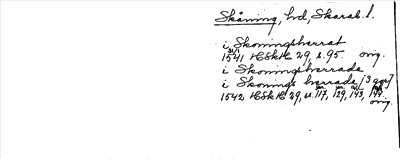 Skåning, hd, Skarab. l.
i Skoningsherrat
1541 HSkH 29, s. 95 orig.
i Skoningsherrade
i Skonings herrade [3 ggr]
1542 HSkH 29, s. 117, 129, 143, 144
orig.